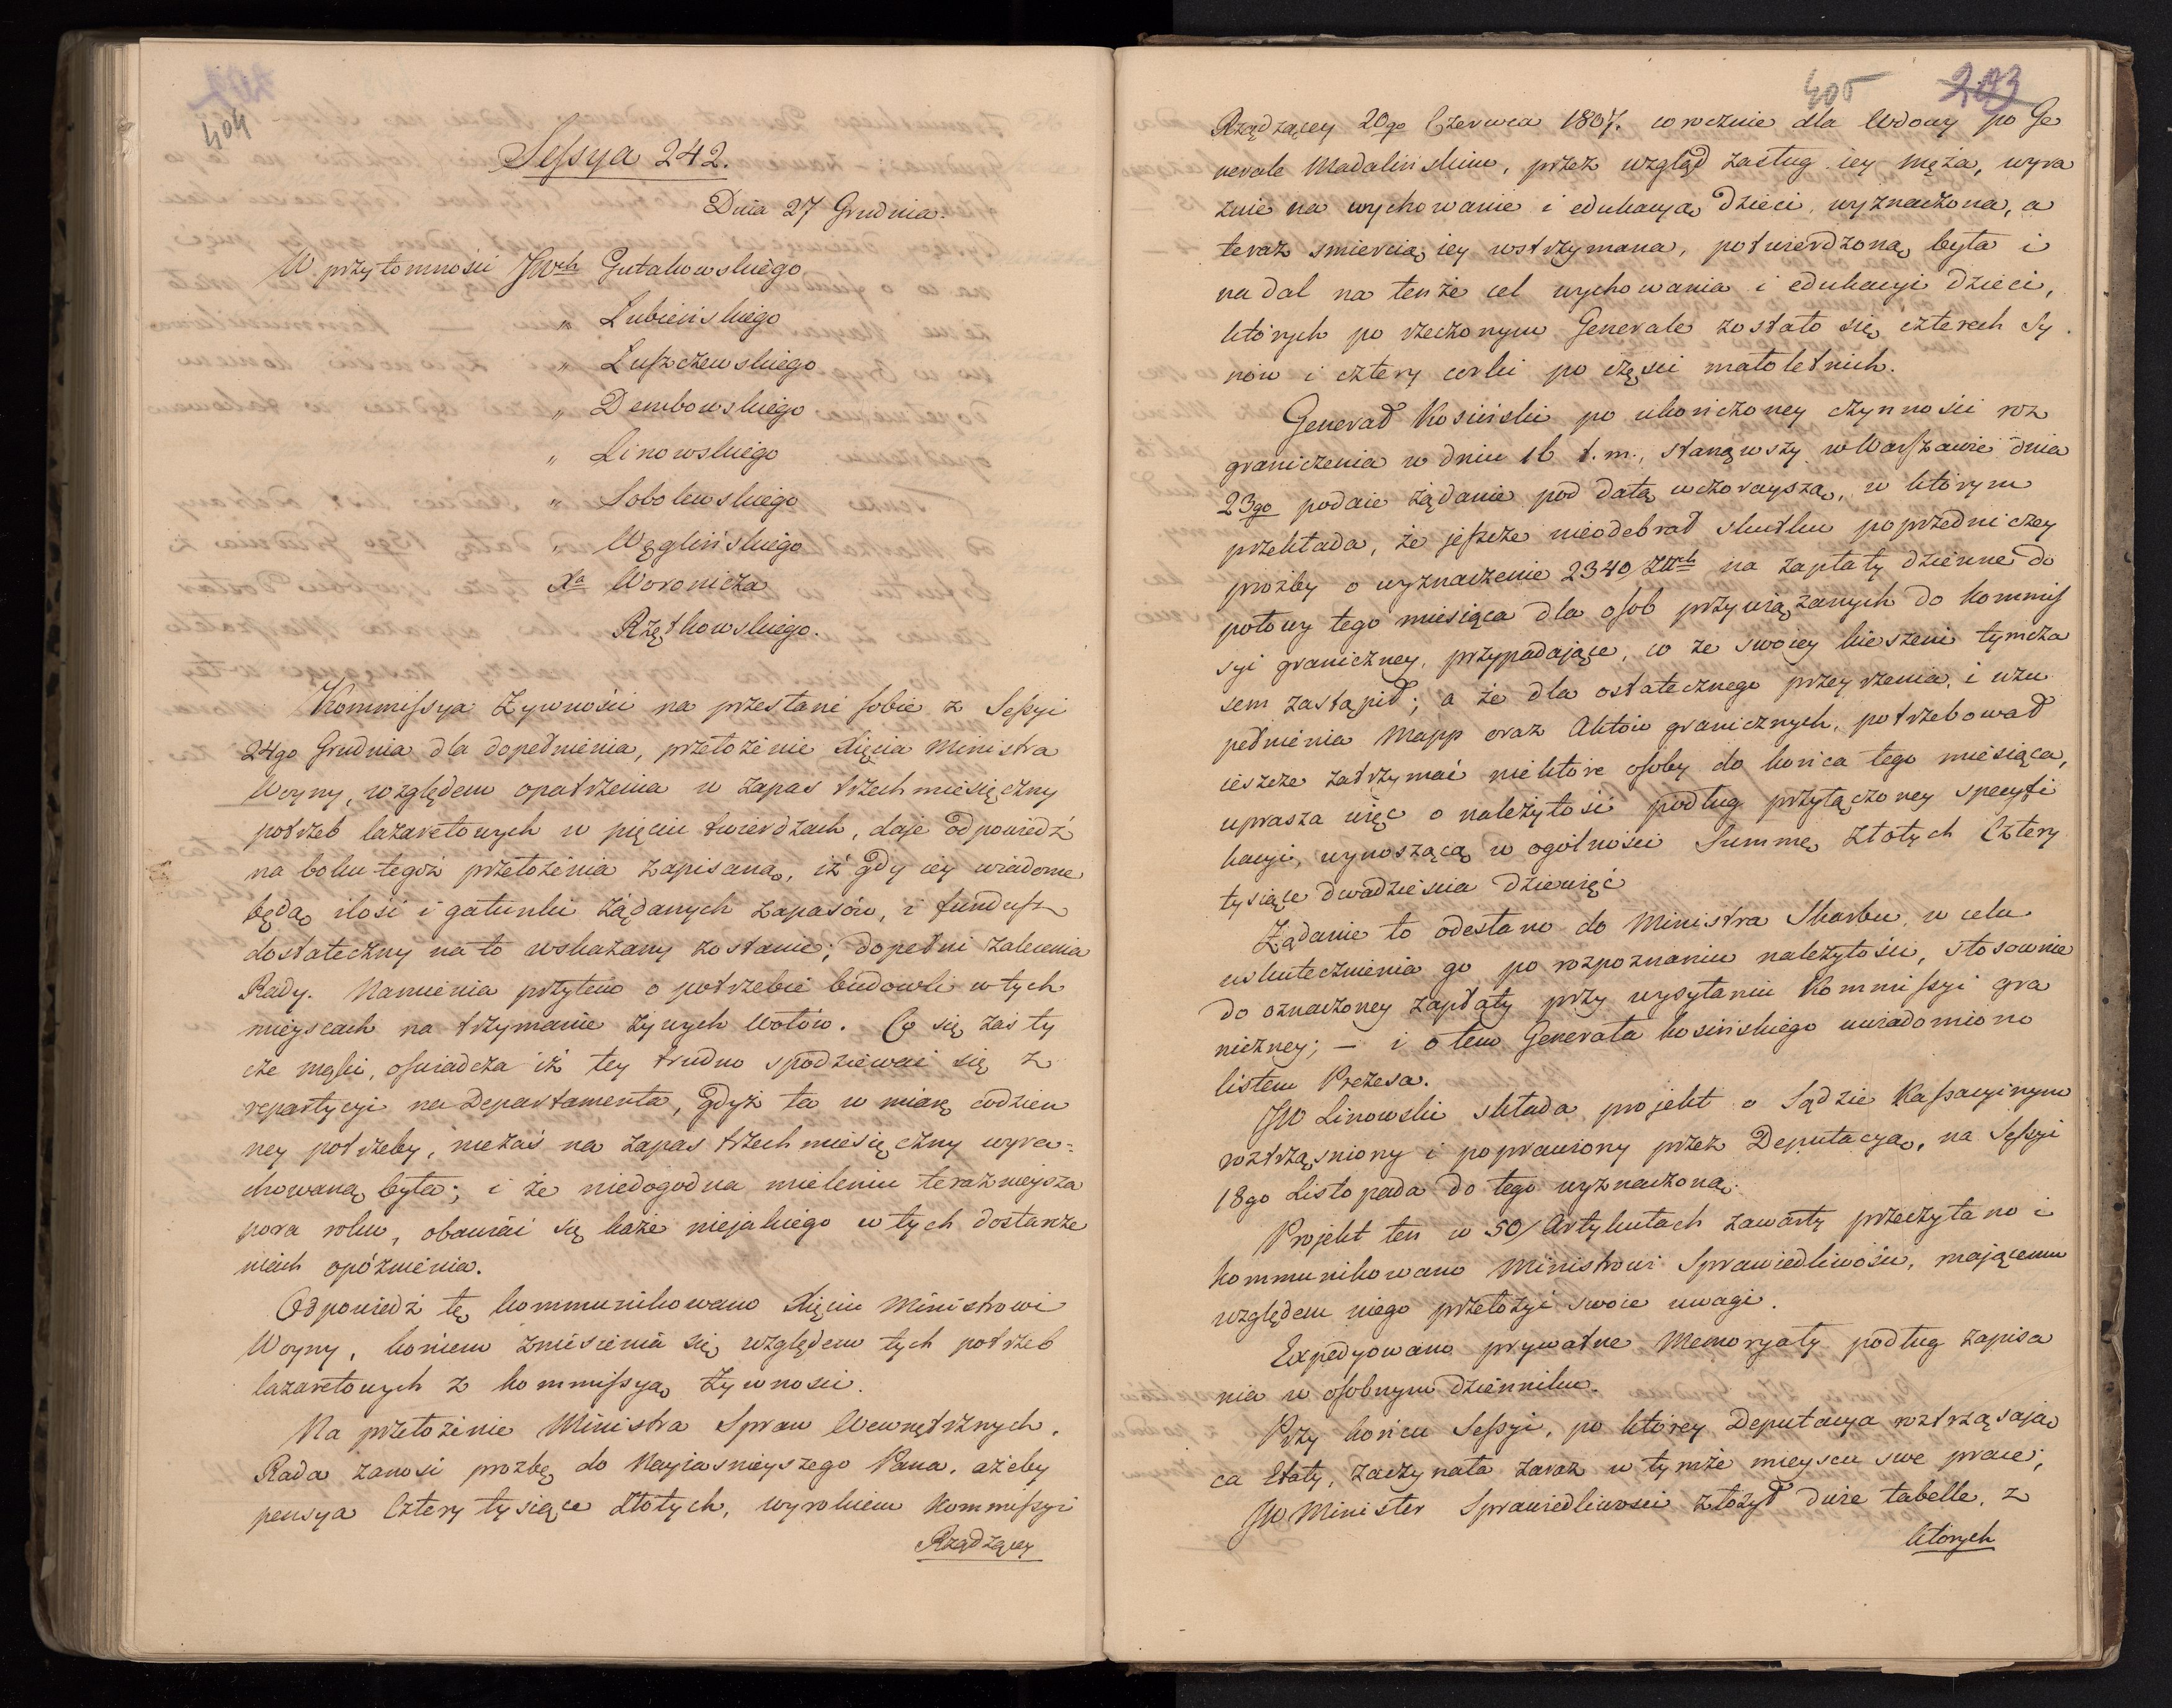 202
404
Seſsya 242.
Dnia 27 Grudnia.
W przytomności JWch Gutakowskiego
„ Łubieńskiego
„ Luſzczewskiego
„ Dembowskiego
„ Linowskiego
„ Sobolewskiego
„ Węglińskiego
Xa Woronicza
Rzętkowskiego.
Kommiſsya Żywności na przesłane ſobie z Seſsyi
24go Grudnia dla dopełnienia, przełożenie Xięcia Ministra
Woyny, względem opatrzenia w zapas trzechmiesięczny
potrzeb lazaretowych w pięciu twierdzach, daje odpowiedź
na boku tegoż przełożenia zapisaną, iż gdy iey wiadome
będą ilość i gatunki żądanych zapasów, i funduſz
dostateczny na to wskazany zostanie; dopełni zalecenia
Rady. Namienia przytem o potrzebie budowli w tych
mieyscach na trzymanie żywych wołów. Co się zaś ty
cze mąki, oſwiadcza iż tey trudno spodziewać się z
repartycyi na Departamenta, gdyż ta w miarę codzien
ney potrzeby, nie zaś na zapas trzechmiesięczny wyra=
chowaną była; i że niedogodna mieleniu teraznieysza
pora roku, obawiać się każe niejakiego w tych dostarcze
niach opóźnienia.
Odpowiedź tę kommunikowano Xięciu Ministrowi
Woyny, końcem zniesienia się względem tych potrzeb
lazaretowych z kommiſsyą żywności.
Na przełożenie Ministra Spraw Wewnętrznych,
Rada zanosi prozbę do Nayiasnieyszego Pana, ażeby
pensya Cztery tysiące złotych, wyrokiem Kommiſsyi
Rządzącey
405
203
Rządzącey 20go Czerwca 1807. corocznie dla Wdowy po Ge
nerale Madalińskim, przez wzgląd zasług iey męża, wyra
znie na wychowanie i edukacyą dzieci, wyznaczona, a
teraz smiercią iey wstrzymana, potwierdzoną była i
nadal na tenże cel wychowania i edukacyi dzieci,
których po rzeczonym Generale zostało się czterech Sy
nów i cztery corki po częsci małoletnich.
Generał Kosiński po ukończoney czynności roz
graniczenia w dniu 16 t. m., stanąwszy w Warſzawie dnia
23go podaie żądanie pod datą wczorayszą, w którym
przekłada, że jeſzcze nieodebrał skutku poprzedniczey
proźby o wyznaczenie 2340 Złłch na zapłaty dzienne do
połowy tego miesiąca dla oſob przywiązanych do kommiſ
syi graniczney, przypadające, co ze swoiey kieszeni tymcza
sem zastąpił; a że dla ostatecznego przeyrzenia, i uzu
pełnienia Mapp oraz Aktów granicznych, potrzebował
ieszcze zatrzymać niektóre oſoby do końca tego miesiąca,
uprasza więc o należytość podług przyłączoney specyfi
kacyi, wynoszącą w ogólności Summę złotych Cztery
tysiące dwadzieścia dziewięć
Żądanie to odesłano do Ministra Skarbu, w celu
uskutecznienia go po rozpoznaniu należytości, stosownie
do oznaczoney zapłaty przy wysyłaniu Kommiſsyi gra
niczney; — i o tem Generała Kosińskiego uwiadomiono
listem Prezesa.
JW Linowski składa projekt o Sądzie Kaſsacyinym
roztrząsniony i poprawiony przez Deputacyą, na Seſsyi
18go Listopada do tego wyznaczoną.
Projekt ten w 50/ Artykułach zawarty przeczytano i
kommunikowano Ministrowi Sprawiedliwości, mającemu
względem niego przełożyć swoie uwagi.
Expedyowano prywatne Memoryały podług zapisa
nia w oſobnym dzienniku.
Przy końcu Seſsyi, po którey Deputacya roztrząsają
ca Etaty, zaczynała zaraz w tymże mieyscu swe prace;
JW Minister Sprawiedliwości złożył dwie tabelle, z
których